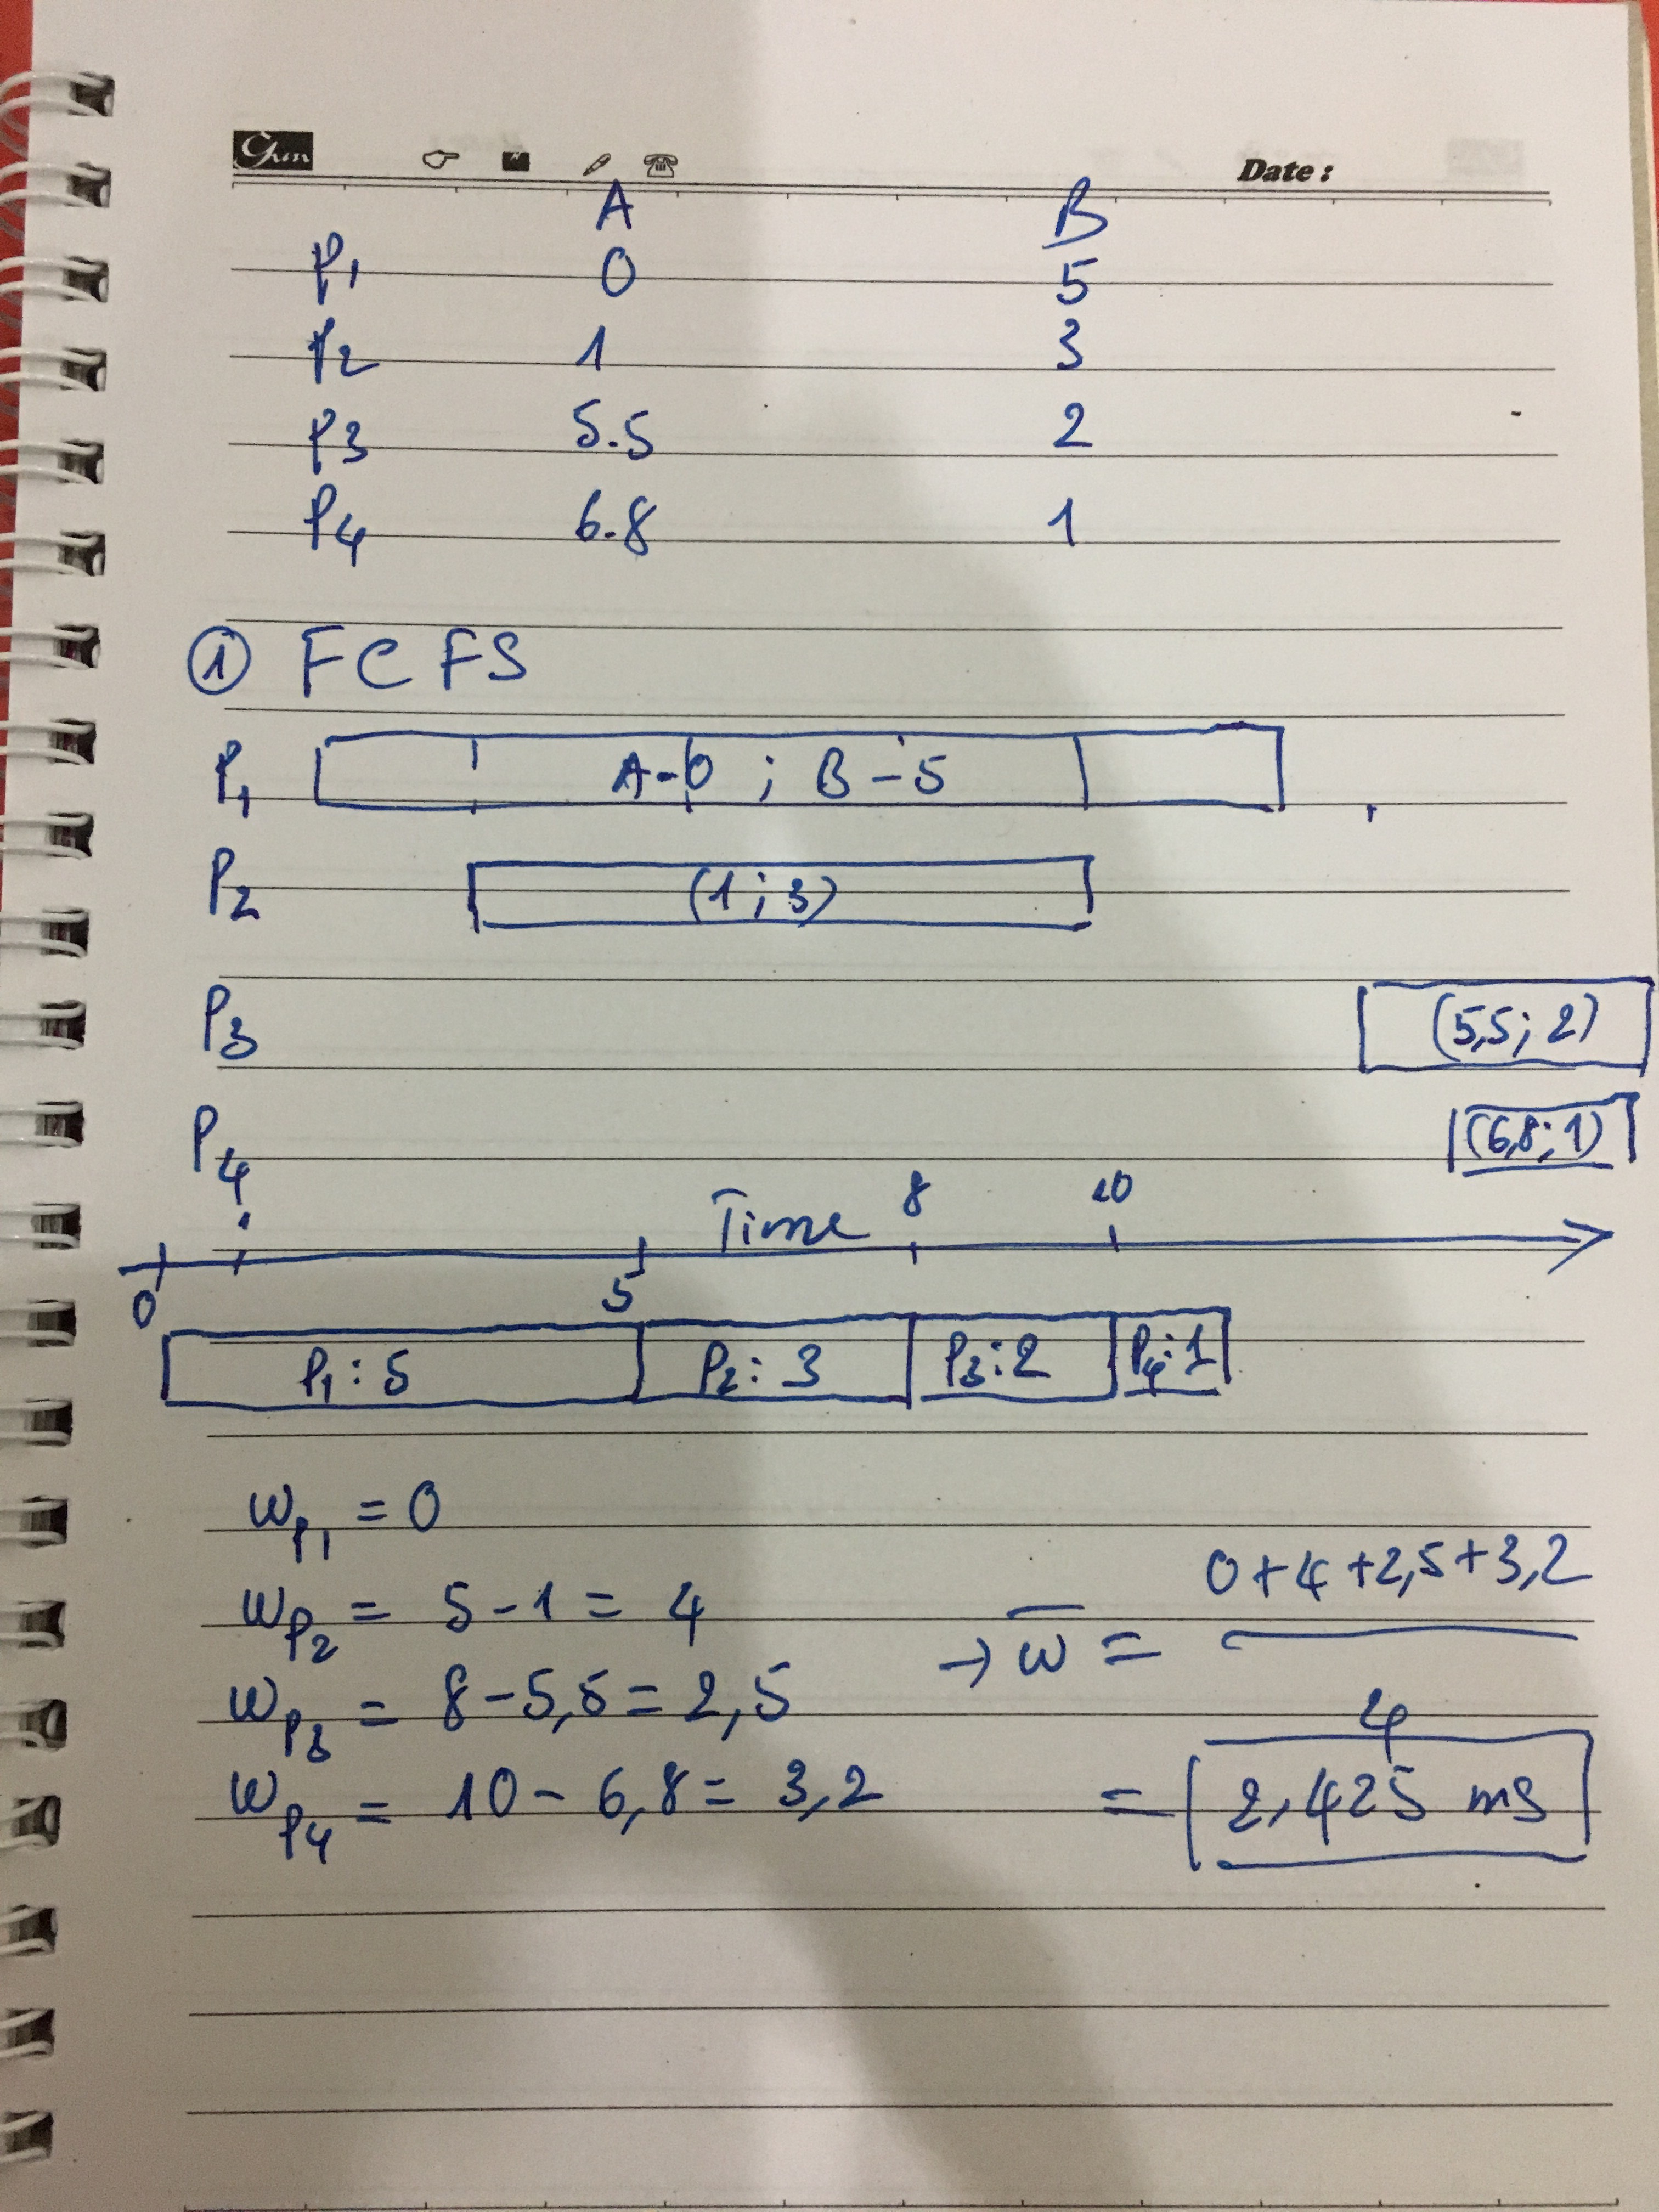 Gun Date :
A B
P1 0 5
P2 1 3
P3 5.5 2
P4 6.8 1
① FCFS
P1 A-0 ; B-5
P2 (1 ; 3)
P3 (5,5 ; 2)
P4 (6,8 ; 1)
1 Time 8 10
0 5
P1 : 5 P2 : 3 P3 : 2 P4 : 1
WP1 = 0
WP2 = 5 - 1 = 4
WP3 = 8 - 5,5 = 2,5
WP4 = 10 - 6,8 = 3,2
0 + 4 + 2,5 + 3,2
→ w̄ =
4
= 2,425 ms